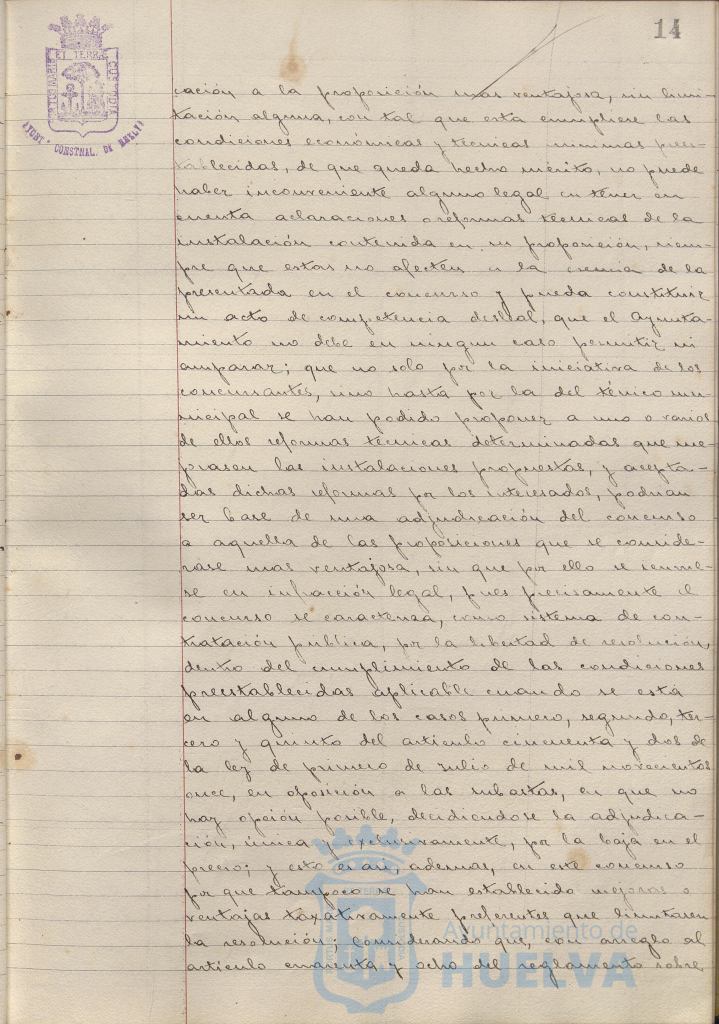 14
PORTUS MARIS ET TERRÆ CUSTODIA
AYUNT° CONSTNAL. DE HUELVA
cación a la proposición mas ventajosa, sin limi-
tación alguna, con tal que esta cumpliese las
condiciones económicas y técnicas minimas pree-
tablecidas, de que queda hecho mérito, no puede
haber inconveniente alguno legal en tener en
cuenta aclaraciones o reformas técnicas de la
instalación contenida en su proposición, siem-
pre que estas no afecten a la esencia de la
presentada en el concurso y pueda constituir
un acto de competencia desleal, que el Ayunta-
miento no debe en ningun caso permitir ni
amparar; que no solo por la iniciativa de los
concursantes, sino hasta por la del ténico mu-
nicipal se han podido proponer a uno o varios
de ellos reformas técnicas determinadas que me-
jorasen las instalaciones propuestas, y acepta-
das dichas reformas por los interesados, podrian
ser base de una adjudicación del concurso
a aquella de las proposiciones que se conside-
rase mas ventajosa, sin que por ello se
en infracción legal, pues precisamente el
concurso se caracteriza, como sistema de con-
tratación pública, por la libertad de resolución,
dentro del cumplimiento de las condiciones
preestablecidas aplicable cuando se está
en alguno de los casos primero, segundo, ter-
cero y quinto del articulo cincuenta y dos de
la ley de primero de Julio de mil novecientos
once, en oposición a las subastas, en que no
hay opción posible, decidiendose la adjudica-
ción, única y exclusivamente, por la baja en el
precio; y esto es asi, ademas, en este concurso
por que tampoco se han establecido mejoras o
ventajas taxativamente preferentes que limitasen
la resolución; considerando que, con arreglo al
articulo cuarenta y ocho del reglamento sobre
Ayuntamiento de
HUELVA